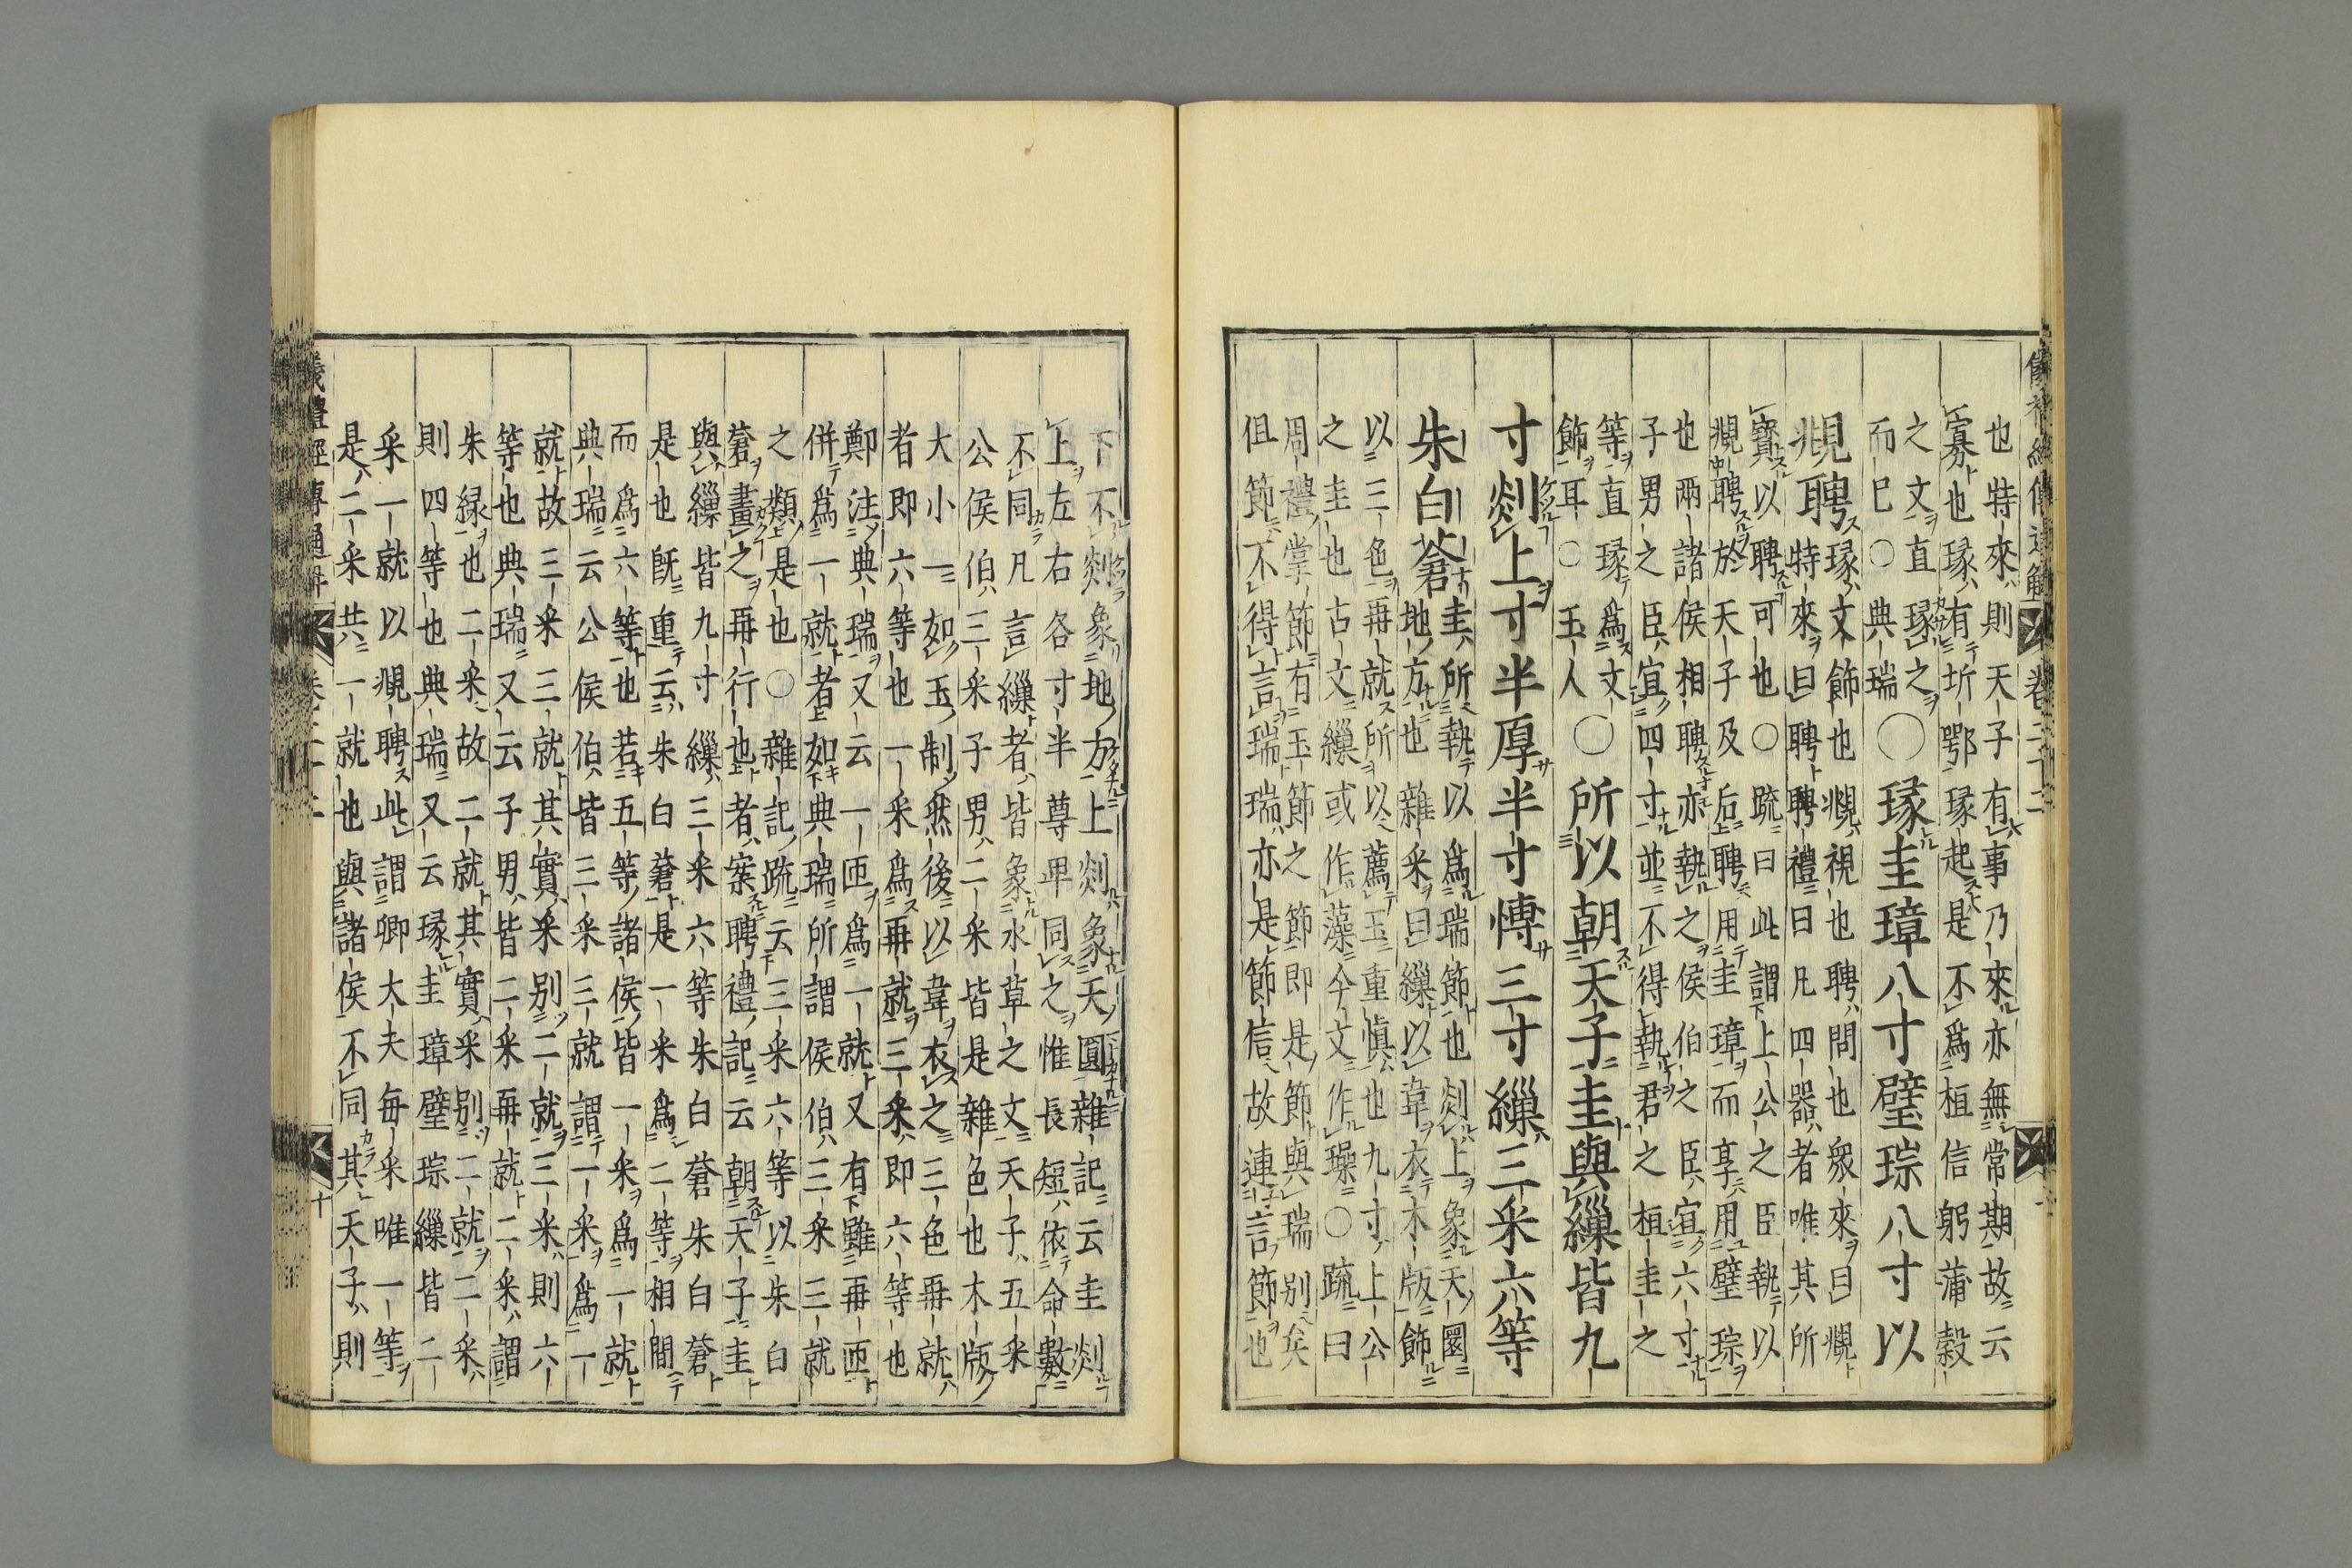 儀禮經傳通解 卷二十二
也特來則天子有事乃來亦無常期故云
寡也瑑有圻鄂瑑起是不爲桓信躬蒲穀
之文直瑑之
而巳○典瑞○瑑圭璋八寸璧琮八寸以
覜聘瑑文飾也覜視也聘問也衆來曰覜
特來曰聘聘禮曰凡四器者唯其所
寶以聘可也○疏曰此謂上公之臣執以
覜聘於天子及后聘用圭璋而享用璧琮
也兩諸侯相聘亦執之侯伯之臣宜六寸
子男之臣宜四寸並不得執君之桓圭之
等直瑑爲文
飾耳○玉人○所以朝天子圭與繅皆九
寸剡上寸半厚半寸愽三寸繅三采六等
朱白蒼圭所執以爲瑞節也剡上象天圜
地方也雜采曰繅以韋衣木版飾
以三色再就所以薦玉重愼也九寸上公
之圭也古文繅或作藻今文作璪○疏曰
周禮掌節有玉節之節即是節與瑞別矣
但節不得言瑞瑞亦是節信故連言節也
下不剡象地方上剡象天圓雜記云圭剡
上左右各寸半尊卑同之惟長短依命數
不同凡言繅者皆象水草之文天子五采
公侯伯三采子男二采皆是雜色也木版
大小一如玉制然後以韋衣之三色再就
者即六等也一采爲再就三采即六等也
鄭注典瑞又云一匝爲一就又有雖再匝
併爲一就者如典瑞所謂侯伯三采三就
之類是也○雜記疏云三采六等以朱白
蒼畫之再行也者案聘禮記云朝天子圭
與繅皆九寸繅三采六等朱白蒼朱白蒼
是也旣重云朱白蒼是一采爲二等相間
而爲六等也若五等諸侯皆一采爲一就
典瑞云公侯伯皆三采三就謂一采爲一
就故三采三就其實采別二就三采則六
等也典瑞又云子男皆二采再就二采謂
朱緑也二采故二就其實采別二就二采
則四等也典瑞又云瑑圭璋璧琮繅皆二
采一就以覜聘此謂卿大夫每采唯一等
是二采共一就也與諸侯不同其天子則
儀禮經傳通解 卷二十二 十